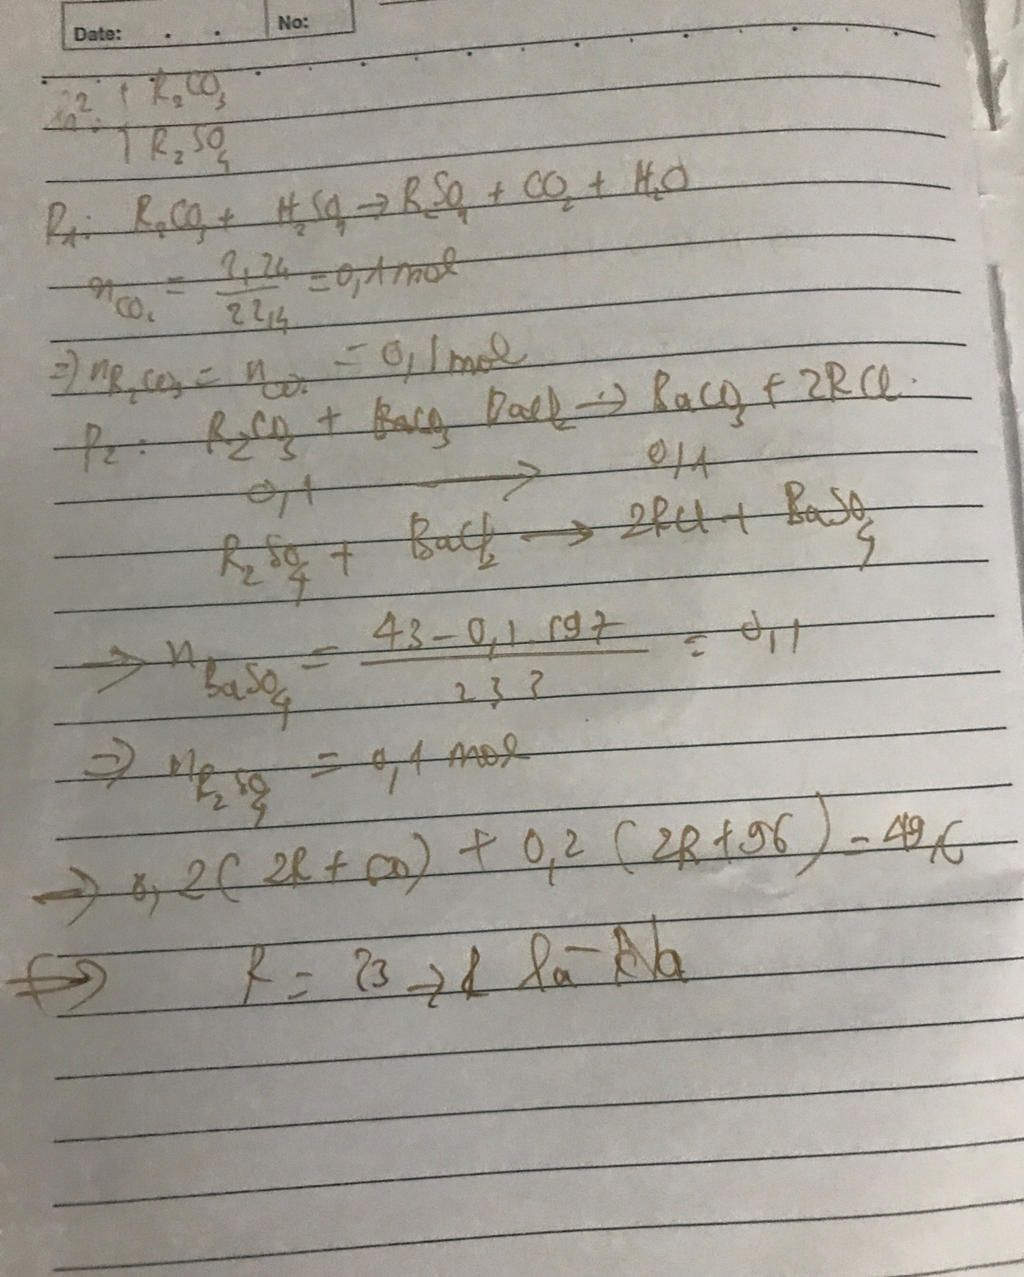 Date: . . No:
R₂CO₃
R₂SO₄
P₁: R₂CO₃ + H₂SO₄ → R₂SO₄ + CO₂ + H₂O
n CO₂ = 2,24 / 22,4 = 0,1 mol
⇒ n R₂CO₃ = n CO₂ = 0,1 mol
P₂: R₂CO₃ + BaCl₂ → BaCO₃ + 2RCl.
0,1 → 0,1
R₂SO₄ + BaCl₂ → 2RCl + BaSO₄
→ n BaSO₄ = 43 - 0,1.197 / 233 = 0,1
⇒ n R₂SO₄ = 0,1 mol
→ 0,2(2R + 60) + 0,2 (2R + 96) = 49,6
⇔ R = 23 → R là Na